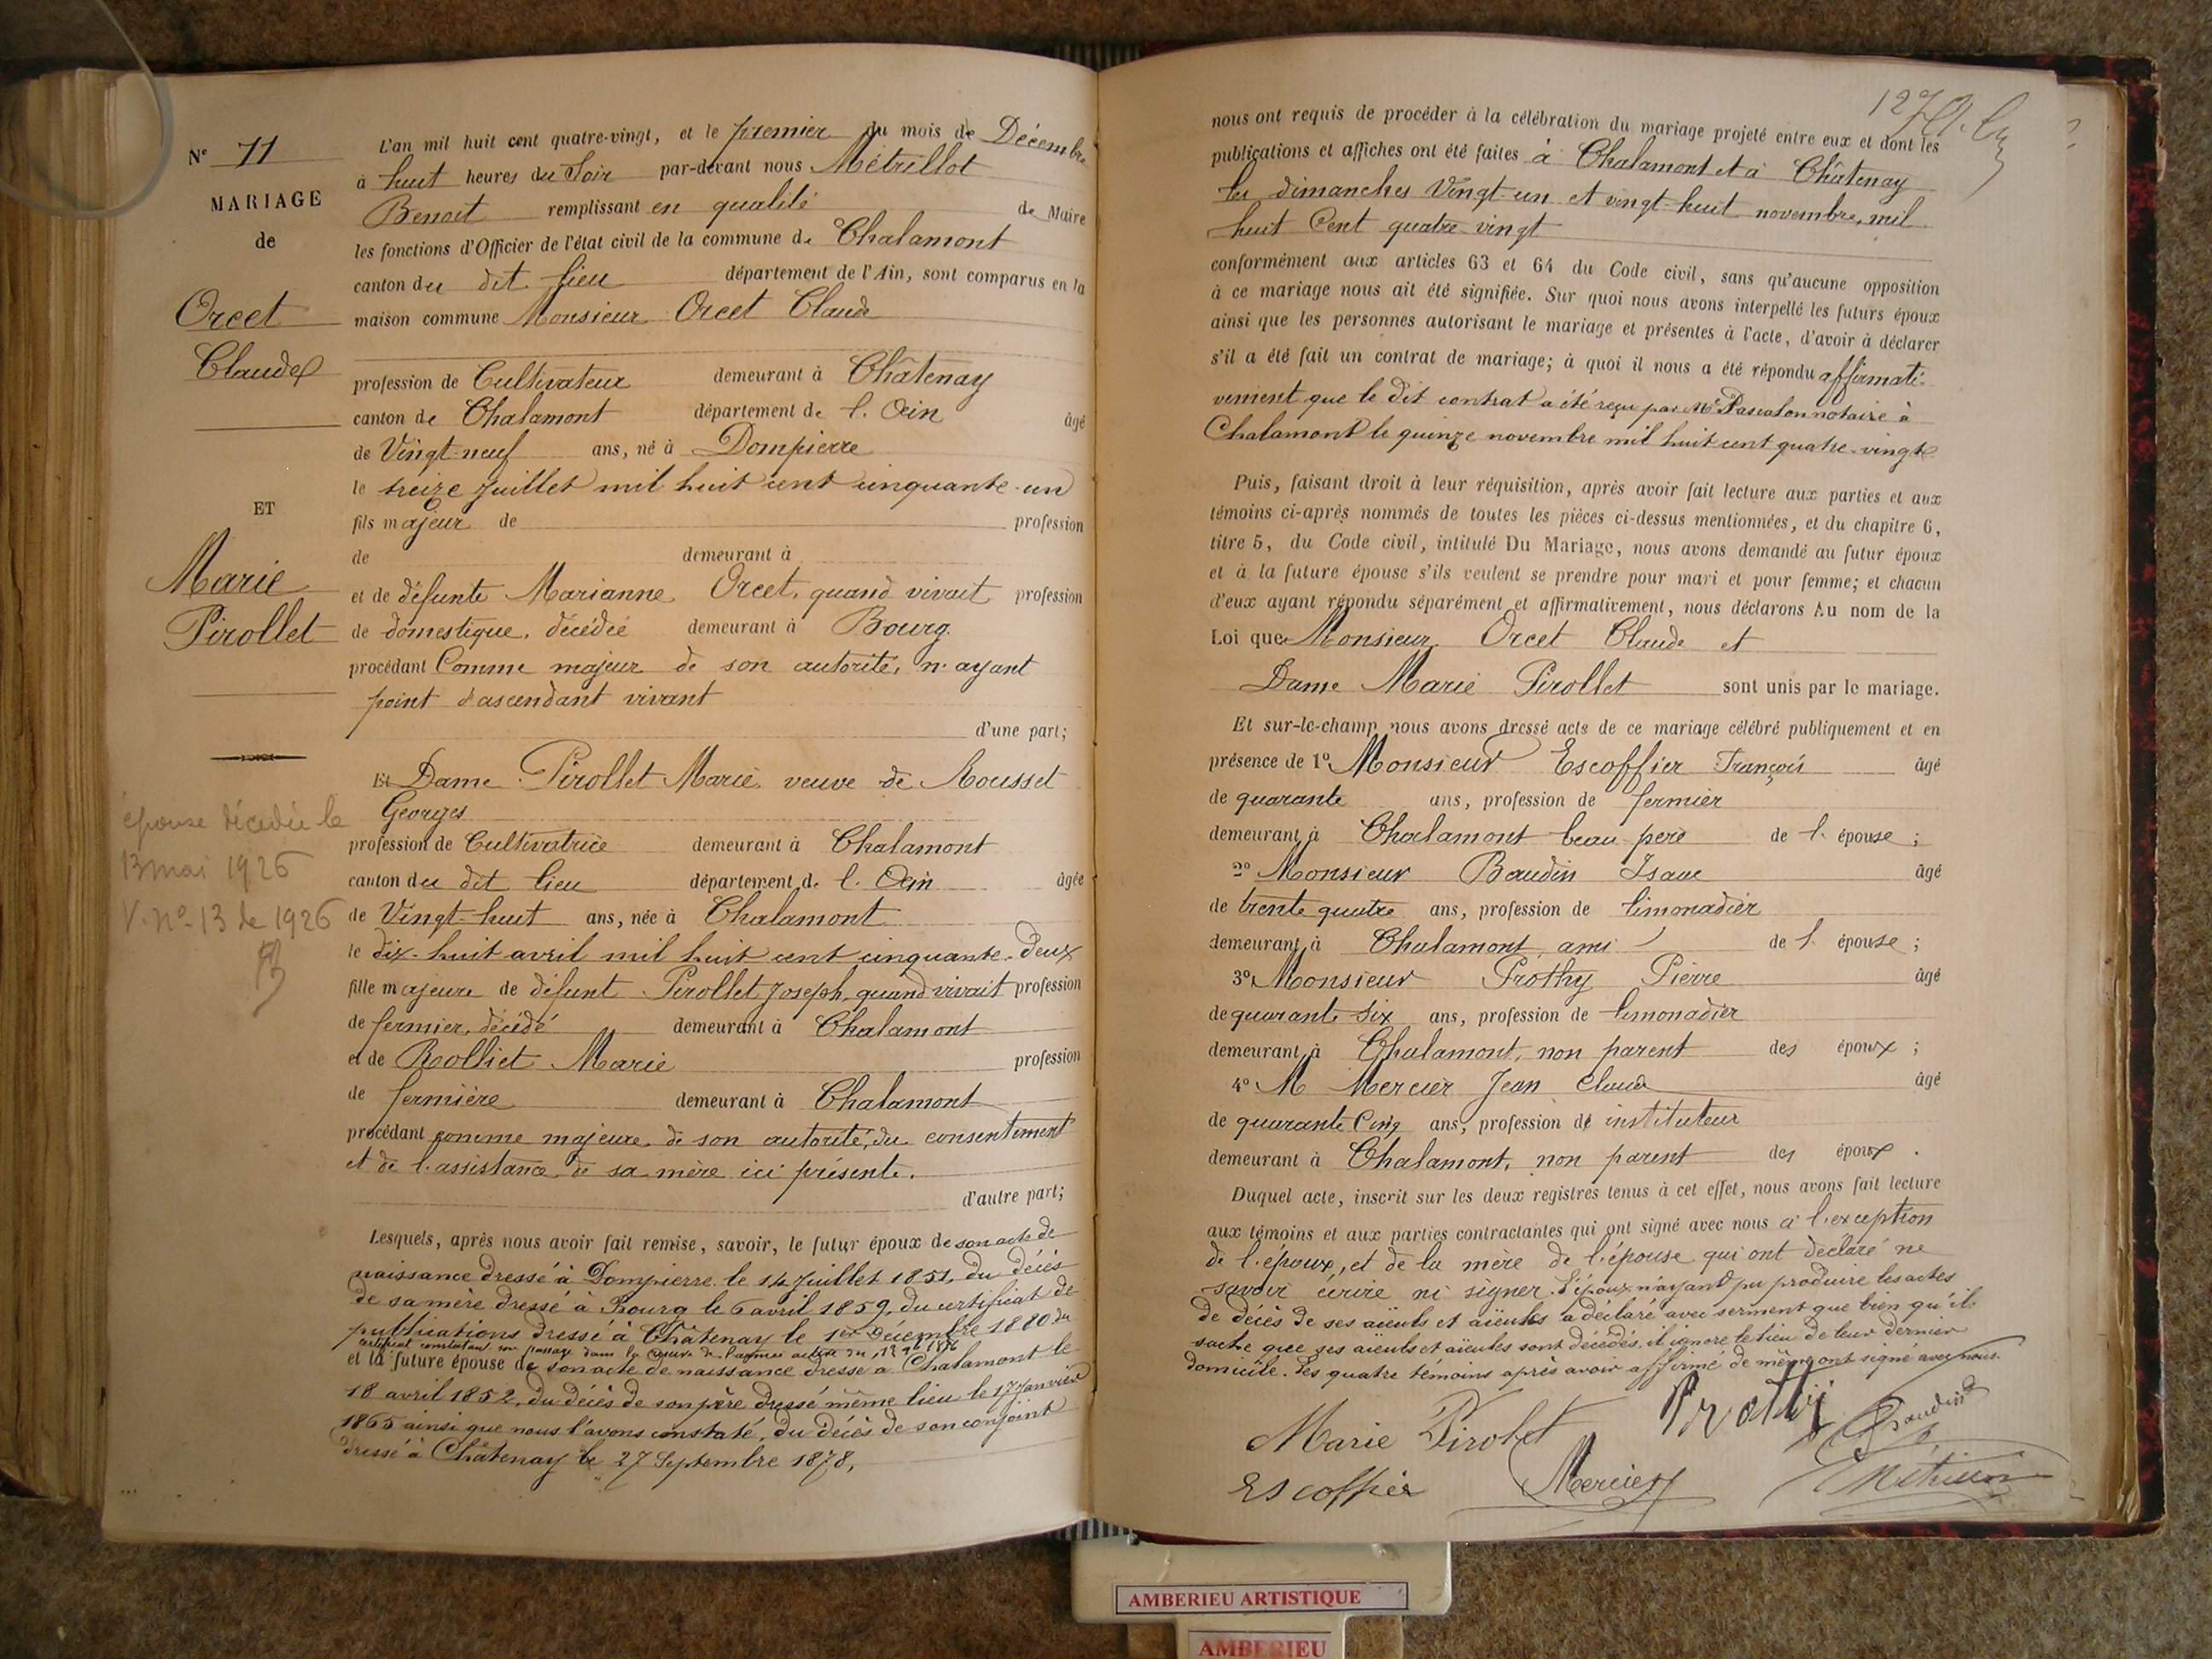 N° 11
MARIAGE
de
Orcet
Claude
ET
Marie
Pirollet
épouse décédée le
13 mai 1926
V. n° 13 de 1926
L'an mil huit cent quatre-vingt, et le premier du mois de Décembre
à huit heures du Soir par-devant nous Métrillot
Benoit remplissant en qualité de Maire
les fonctions d'Officier de l'état civil de la commune de Chalamont
canton du dit lieu département de l'Ain, sont comparus en la
maison commune Monsieur Orcet Claude
profession de Cultivateur demeurant à Châtenay
canton de Chalamont département de l'Ain âgé
de Vingt-neuf ans, né à Dompierre
le treize Juillet mil huit cent cinquante-un
fils majeur de profession
de demeurant à
et de défunte Marianne Orcet, quand vivait profession
de domestique, décédée demeurant à Bourg.
procédant Comme majeur de son autorité, n'ayant
point d'ascendant vivant
d'une part;
Et Dame Pirollet Marie veuve de Rousset
Georges
profession de Cultivatrice demeurant à Chalamont
canton du dit lieu département de l'Ain âgée
de Vingt-huit ans, née à Chalamont
le dix-huit avril mil huit cent cinquante-deux
fille majeure de défunt Pirollet Joseph, quand vivait profession
de fermier, décédé demeurant à Chalamont
et de Rolliet Marie profession
de fermière demeurant à Chalamont
procédant comme majeure de son autorité, du consentement
et de l'assistance de sa mère ici présente.
d'autre part;
Lesquels, après nous avoir fait remise, savoir, le futur époux de son acte de
naissance dressé à Dompierre le 14 Juillet 1851, du décès
de sa mère dressé à Bourg le 6 avril 1859, du certificat de
publications dressé à Châtenay le 1er Décembre 1880 du
certificat constatant son passage dans la réserve de l'armée active du
et la future épouse de son acte de naissance dressé à Chalamont le
18 avril 1852, du décès de son père dressé même lieu le 17 Janvier
1865 ainsi que nous l'avons constaté, du décès de son conjoint
dressé à Châtenay le 27 Septembre 1878,
127
nous ont requis de procéder à la célébration du mariage projeté entre eux et dont les
publications et affiches ont été faites à Chalamont et à Châtenay
les dimanches Vingt-un et vingt-huit novembre, mil
huit Cent quatre vingt
conformément aux articles 63 et 64 du Code civil, sans qu'aucune opposition
à ce mariage nous ait été signifiée. Sur quoi nous avons interpellé les futurs époux
ainsi que les personnes autorisant le mariage et présentes à l'acte, d'avoir à déclarer
s'il a été fait un contrat de mariage; à quoi il nous a été répondu affirmati-
vement que le dit contrat a été reçu par Me Pascalon notaire à
Chalamont le quinze novembre mil huit cent quatre-vingt
Puis, faisant droit à leur réquisition, après avoir fait lecture aux parties et aux
témoins ci-après nommés de toutes les pièces ci-dessus mentionnées, et du chapitre 6,
titre 5, du Code civil, intitulé Du Mariage, nous avons demandé au futur époux
et à la future épouse s'ils veulent se prendre pour mari et pour femme; et chacun
d'eux ayant répondu séparément et affirmativement, nous déclarons Au nom de la
Loi que Monsieur Orcet Claude et
Dame Marie Pirollet sont unis par le mariage.
Et sur-le-champ nous avons dressé acte de ce mariage célébré publiquement et en
présence de 1° Monsieur Escoffier François âgé
de quarante ans, profession de fermier
demeurant à Chalamont beau-père de l'épouse;
2° Monsieur Baudin Isaac âgé
de trente quatre ans, profession de limonadier
demeurant à Chalamont, ami de l'épouse;
3° Monsieur Prothy Pierre âgé
de quarante six ans, profession de limonadier
demeurant à Chalamont, non parent des époux;
4° M Mercier Jean Claude âgé
de quarante Cinq ans, profession de instituteur
demeurant à Chalamont, non parent des époux.
Duquel acte, inscrit sur les deux registres tenus à cet effet, nous avons fait lecture
aux témoins et aux parties contractantes qui ont signé avec nous à l'exception
de l'époux, et de la mère de l'épouse qui ont déclaré ne
savoir écrire ni signer. L'époux n'ayant pu produire les actes
de décès de ses aïeuls et aïeules a déclaré avec serment que bien qu'il
sache que ses aïeuls et aïeules sont décédés, il ignore le lieu de leur dernier
domicile. Les quatre témoins après avoir affirmé de même ont signé avec nous.
Marie Pirollet Prothy Baudin
Escoffier Mercier
AMBERIEU ARTISTIQUE
AMBERIEU